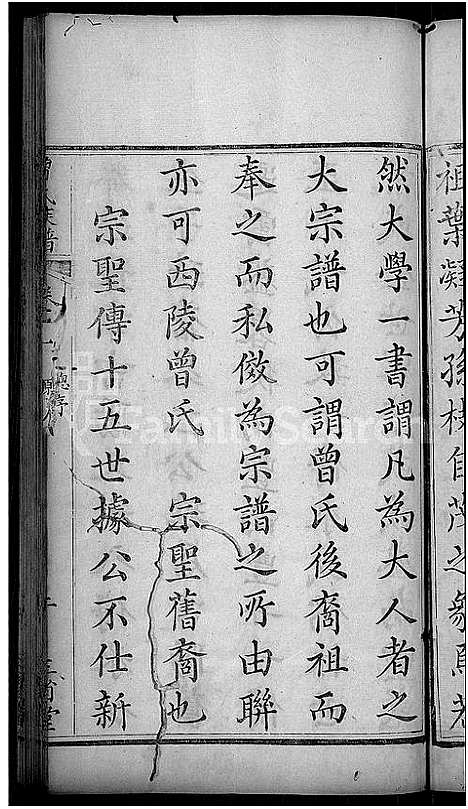 祖葉凝芳孫枝自茂之象焉若
然大學一書謂凡為大人者之
大宗譜也可謂曾氏後裔祖而
奉之而私倣為宗譜之所由聯
亦可西陵曾氏 宗聖舊裔也
宗聖傳十五世據公不仕新
曾氏族譜
總序
FamilySearch